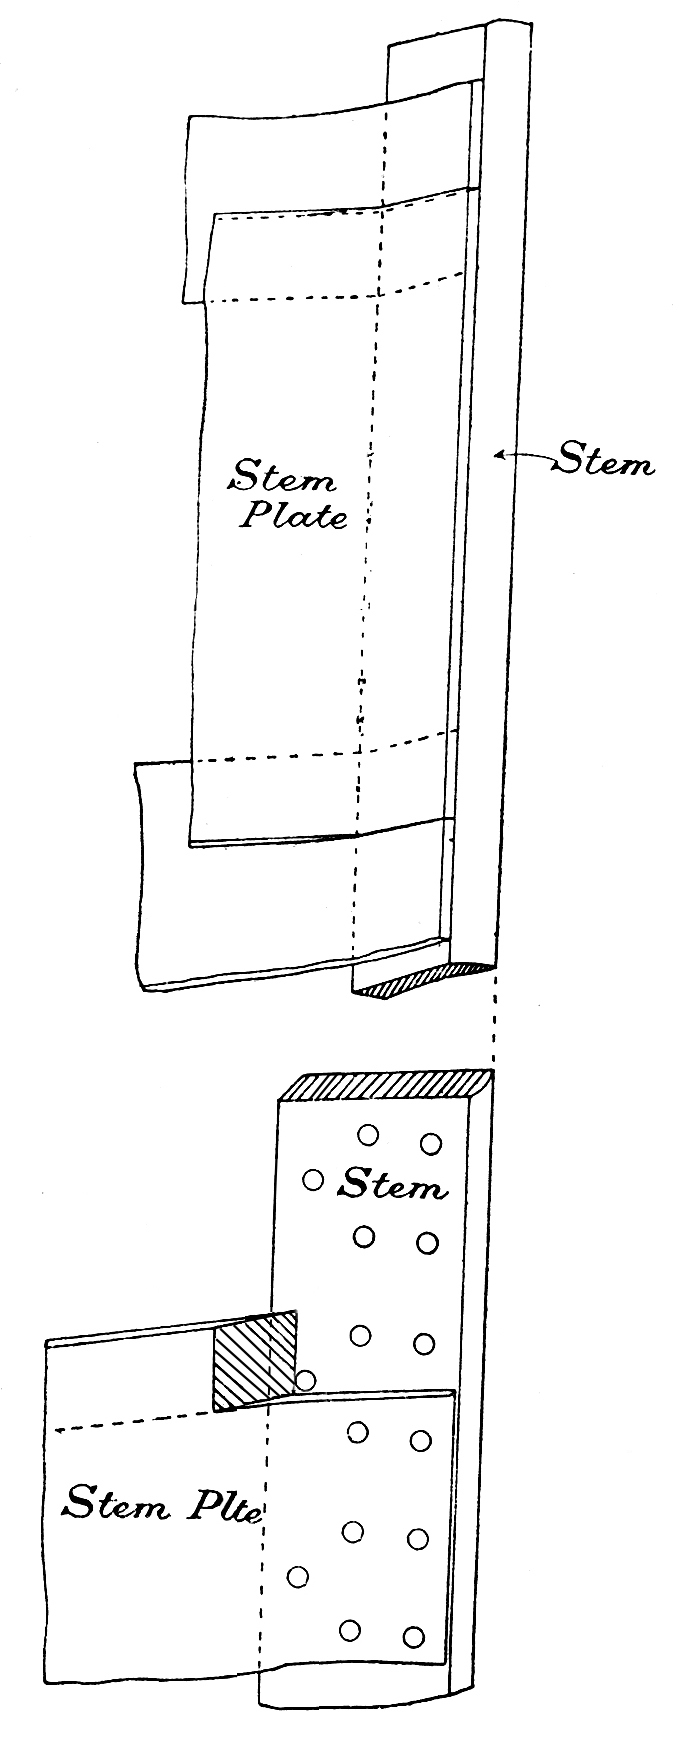 Stem
Plate
Stem
Stem
Stem Plte